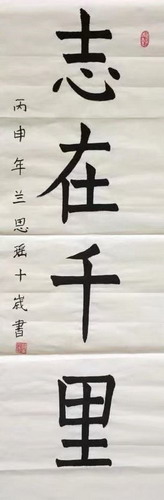 志在千里
丙申年兰思瑶十岁書